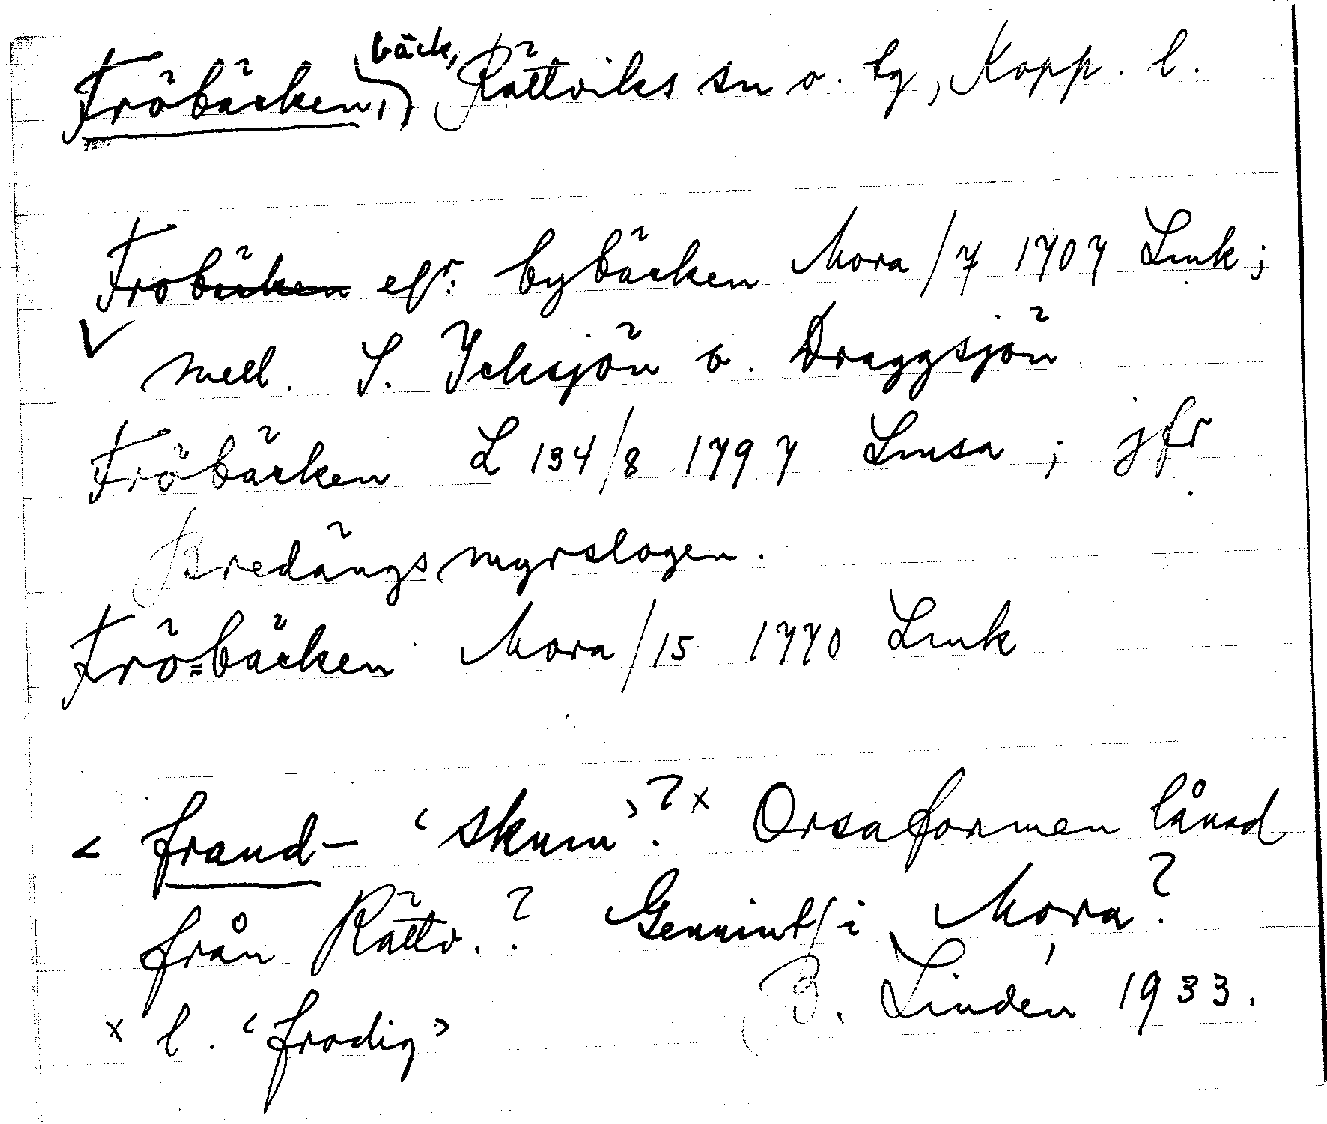 Fröbäcken, bäck, Rättviks sn o. tg, Kopp. l.
Frobäcken efr: bybäcken Mora/7 1707 Lmk;
mell. S. Icksjön o. Draggsjön
Fröbäcken L 134/8 1797 Lmsa; jfr
Bredängsmyrslogen.
Frö=bäcken Mora/15 1770 Lmk
< fraud- ‘skum’?x Orsaformen lånad
från Rättv.? Genuint/i Mora?
B. Lindén 1933.
x l. ‘frodig’